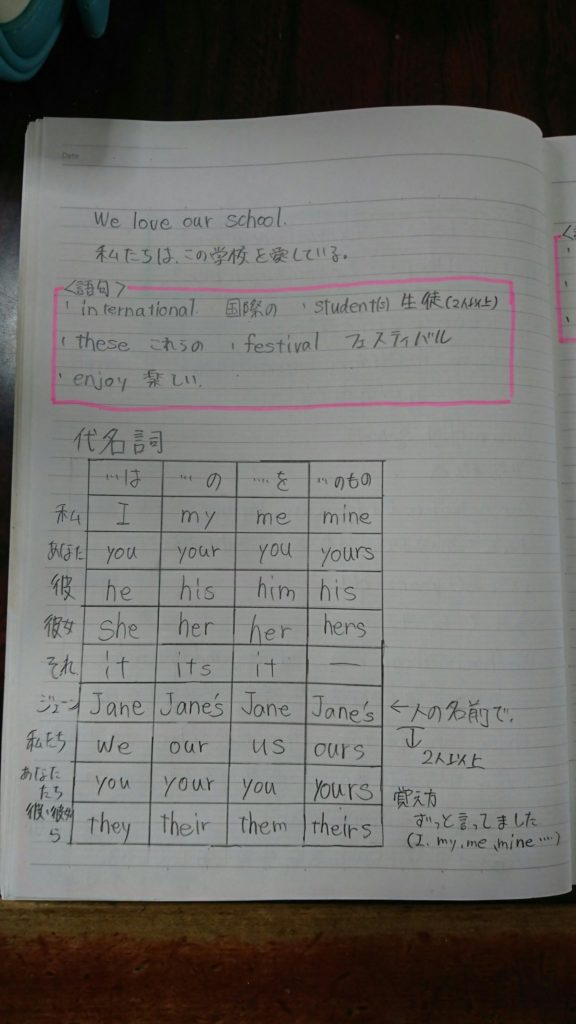 Date
We love our school.
私たちは、この学校を愛している。
<語句>
・international 国際の ・student(s) 生徒(2人以上)
・these これらの ・festival フェスティバル
・enjoy 楽しい.
代名詞
…は …の …を …のもの
私 I my me mine
あなた you your you yours
彼 he his him his
彼女 she her her hers
それ it its it —
ジェーン Jane Jane's Jane Jane's ←人の名前で.
私たち we our us ours ↓2人以上
あなたたち you your you yours 覚え方
彼・彼女ら they their them theirs ずっと言ってました
(I, my, me, mine ‥‥)